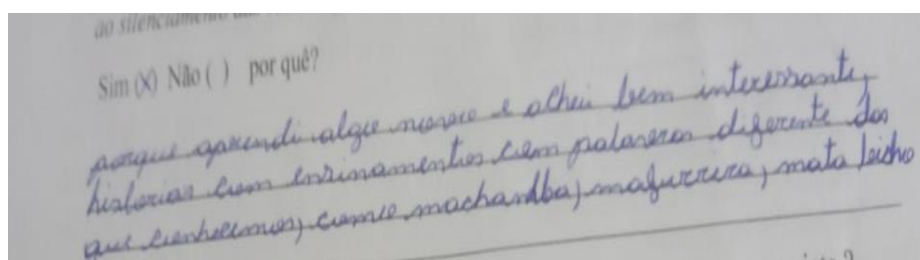 ao silenciamento
Sim (X) Não ( ) por quê?
porque aprendi algo novo e achei bem interessante,
historias com ensinamentos com palavras diferente das
que conhecemos, como machandba, mafurrira, mata bicho